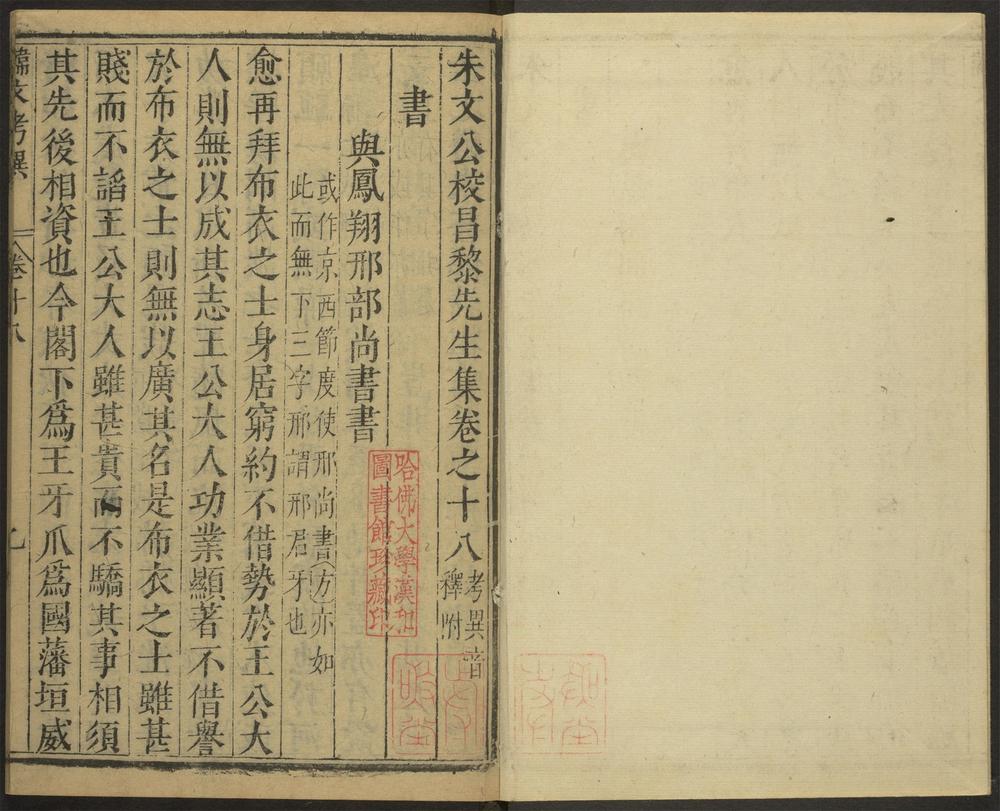 朱文公校昌黎先生集卷之十八
考異音
釋附
書
與鳳翔邢部尚書書
或作京西節度使邢尚書方亦如
此而無下三字邢謂邢君牙也
愈再拜布衣之士身居窮約不借勢於王公大
人則無以成其志王公大人功業顯著不借譽
於布衣之士則無以廣其名是布衣之士雖甚
賤而不謟王公大人雖甚貴而不驕其事相須
其先後相資也今閣下爲王牙爪爲國藩垣威
韓文考異
卷十八
哈佛大學漢和
圖書館珍藏印